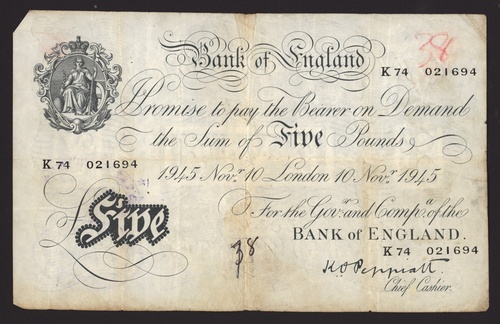 Bank of England
38
K 74 021694
I Promise to pay the Bearer on Demand
the Sum of Five Pounds
K 74 021694
1945 Novr. 10 London 10 Novr. 1945
For the Govr. and Compa. of the
£Five
BANK of ENGLAND.
K 74 021694
38
K O Peppiatt
Chief Cashier.